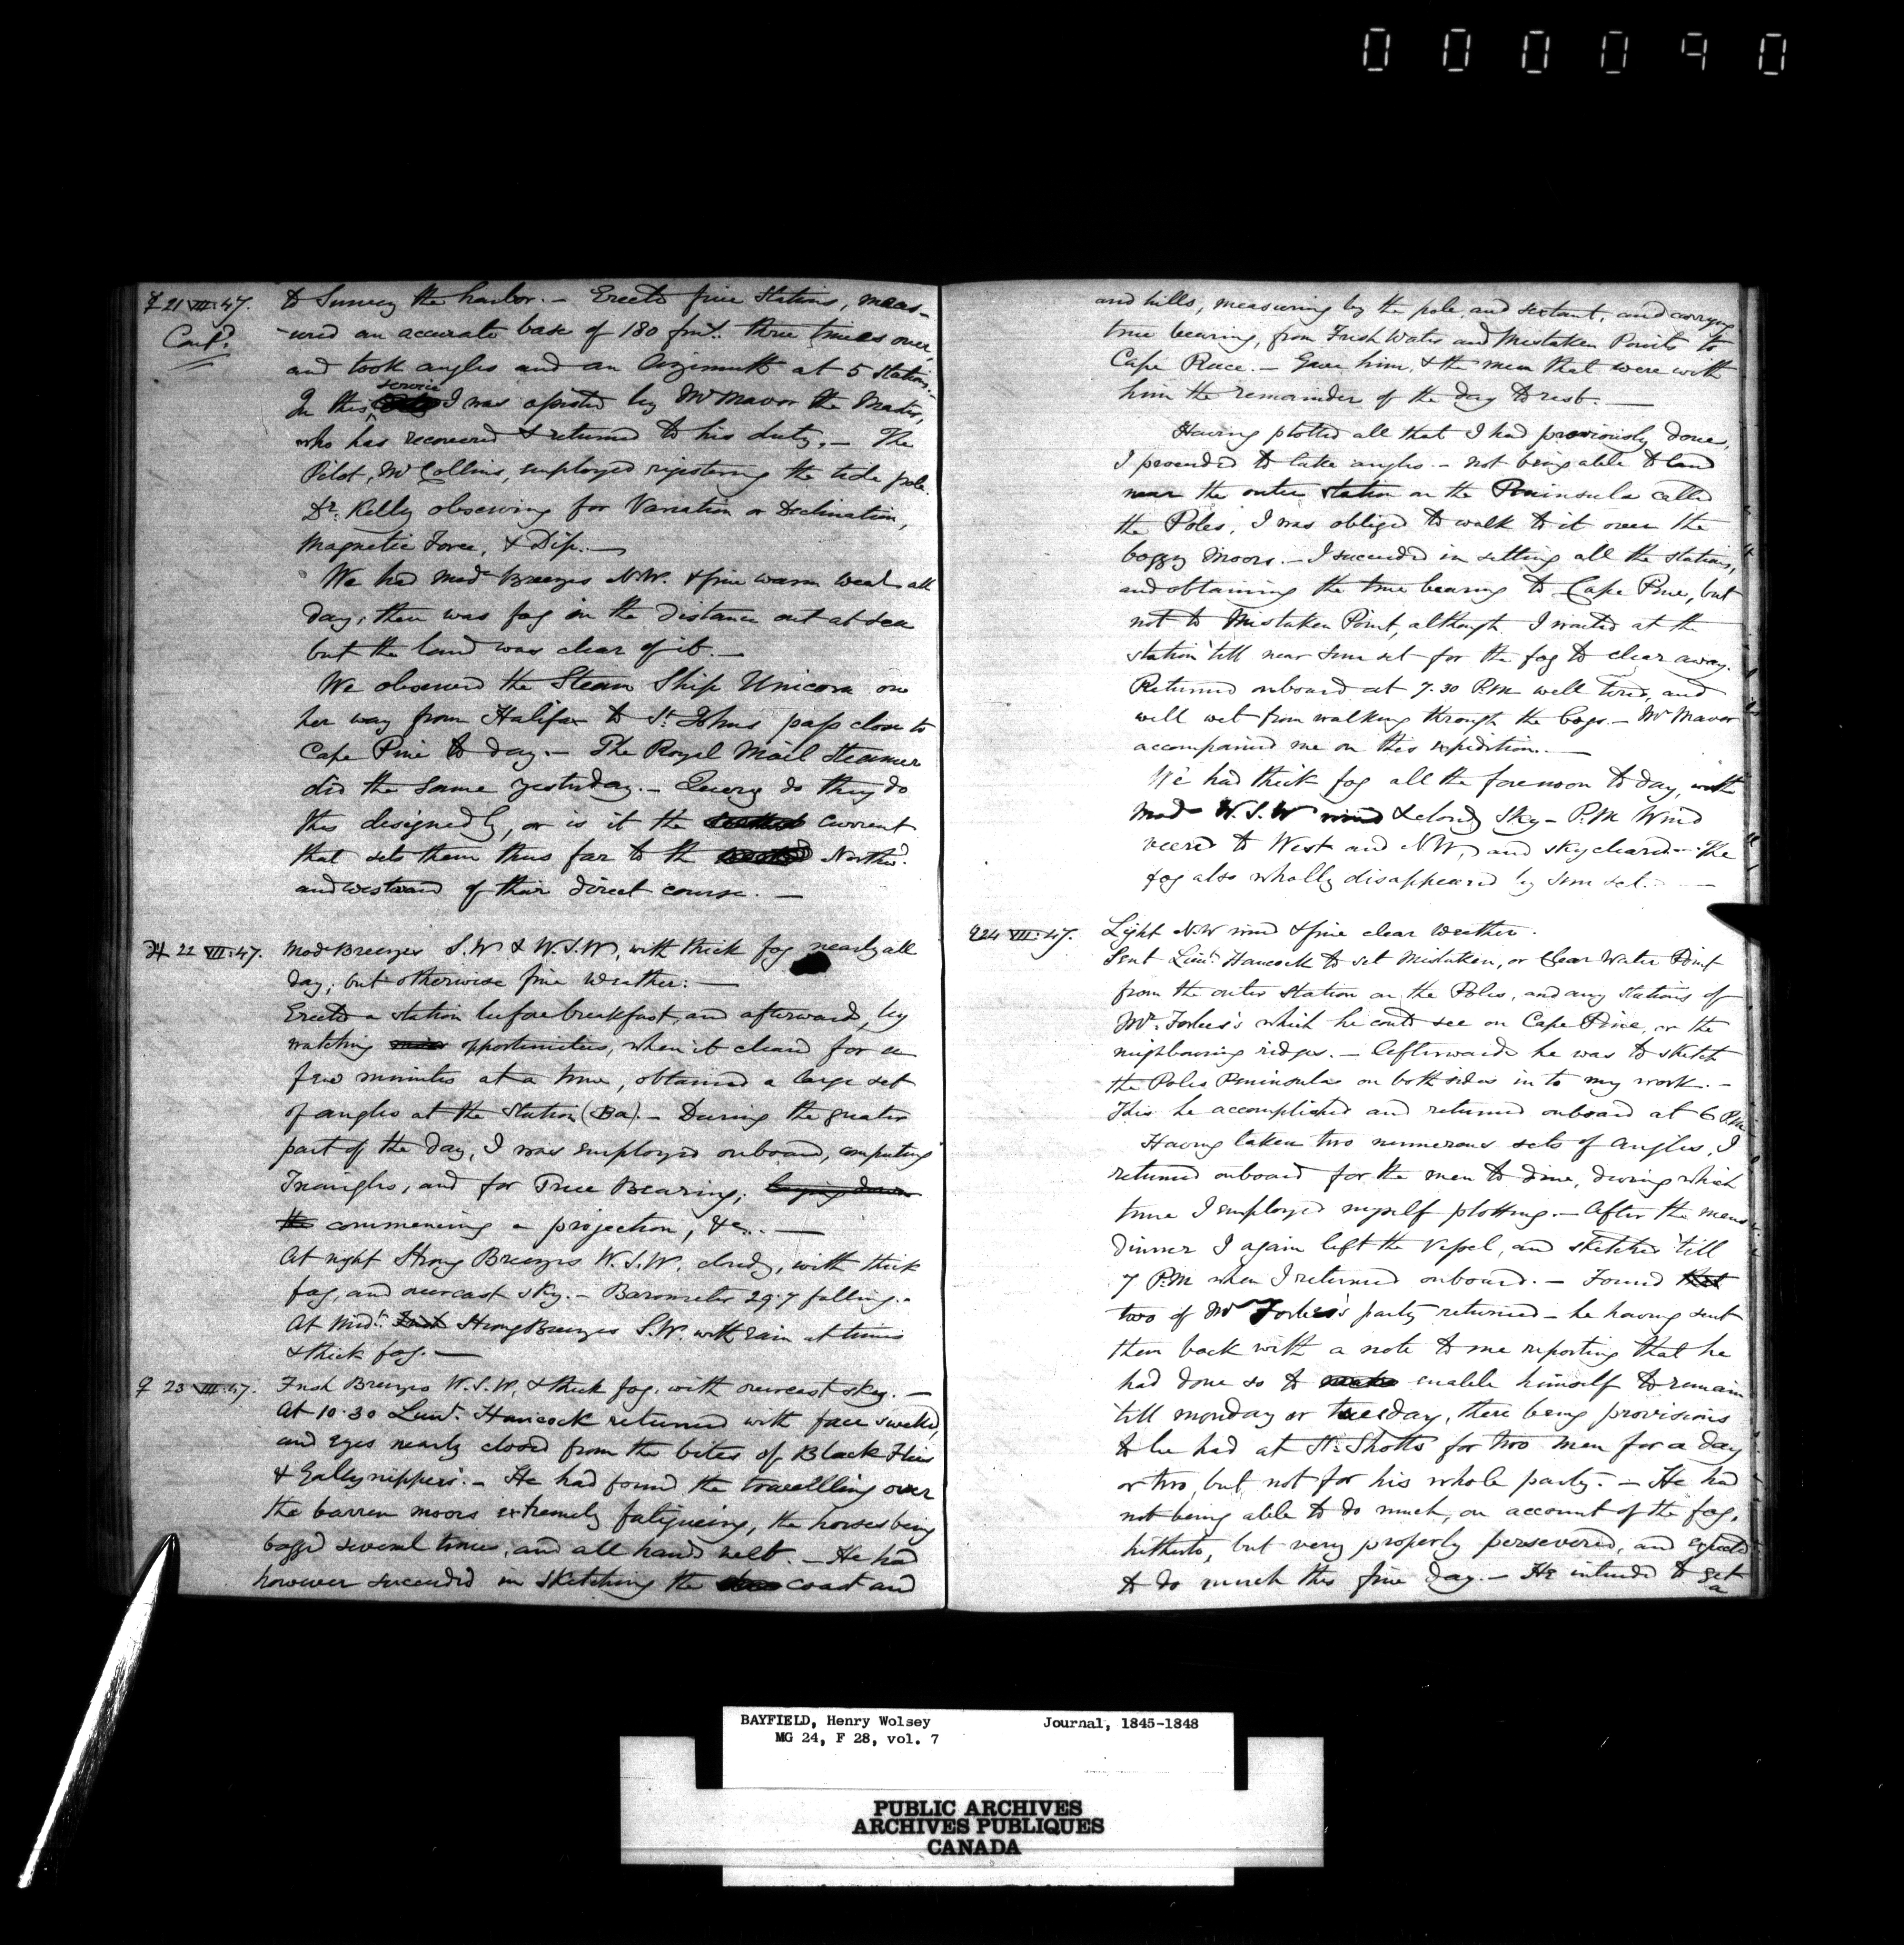 000090
☿ 21 VII. 47.
Contd.
to Survey the harbor. — Erected five Stations, meas-
-ured an accurate base of 180 fms. three times over,
and took angles and an Azimuth at 5 stations. —
In this service I was assisted by Mr Mavor the Master,
who has recovered & returned to his duty. — The
Pilot, Mr Collins, employed registering the tide pole.
Dr. Kelly observing for Variation or Declination,
Magnetic Force, & Dip. —
We had Modr Breezes N.W. & fine warm weatr all
day; there was fog in the distance out at sea
but the land was clear of it. —
We observed the Steam Ship Unicorn on
her way from Halifax to St. Johns pass close to
Cape Pine to day. — The Royal Mail Steamer
did the same yesterday. — Query do they do
this designedly, or is it the current
that sets them thus far to the Northwd.
and westward of their direct course. —
♃ 22 VII. 47.
Modr Breezes S.W & W.S.W, with thick fog nearly all
day; but otherwise fine weather: —
Erected a station before breakfast, and afterwards, by
watching opportunities, when it cleared for a
few minutes at a time, obtained a large set
of angles at the Station (Ba). — During the greater
part of the day, I was employed onboard, computing
Triangles, and for True Bearing; laying down
the commencing a projection, &c.. —
At night Strong Breezes W.S.W. cloudy, with thick
fog, and overcast sky. — Barometer 29.7 falling. -
At Midt. Strong Breezes S.W. with rain at times
& thick fog. —
♀ 23 VII. 47.
Fresh Breezes W.S.W, & thick fog, with overcast sky. —
At 10.30 Lieut. Hancock returned with face swelled,
and eyes nearly closed from the bites of Black Flies
& Gallynippers. — He had found the travellling over
the barren moors extremely fatigueing, the horses being
bogged several times, and all hands wet. — He had
however succeeded in sketching the coast and
and hills, measuring by the pole, and sextant, and carrying
true bearing, from Fresh Water and Mistaken Points to
Cape Race. — Gave him, & the men that were with
him the remainder of the day to rest. —
Having plotted all that I had previously done,
I proceeded to take angles. — not being able to land
near the outer station on the Peninsula called
the Poles, I was obliged to walk to it over the
boggy moors. — I succeeded in setting all the stations,
and obtaining the true bearing to Cape Pine, but
not to Mistaken Point, although I waited at the
station 'till near sun set for the fog to clear away.
Returned onboard at 7.30 P.M well tired, and
well wet from walking through the bogs. — Mr Mavor
accompanied me on this expedition. —
We had thick fog all the forenoon to day, with
Modr W.S.W wind & cloudy sky — P.M Wind
veered to West and NW, and sky cleared — The
fog also wholly disappeared by sun set. —
24 VII. 47.
Light N.W wind & fine clear weather.
Sent Lieut. Hancock to set Mistaken, or Clear Water Point
from the outer station on the Poles, and any stations of
Mr. Forbes's which he could see on Cape Pine, or the
neighbouring ridges. — Afterwards he was to sketch
the Poles Peninsula on both sides in to my work. —
This he accomplished and returned onboard at 6 P.M.
Having taken two numerous sets of angles, I
returned onboard for the men to dine, during which
time I employed myself plotting. — After the mens
dinner I again left the Vessel, and sketched 'till
7 P.M when I returned onboard. — Found that
two of Mr Forbes's party returned — he having sent
them back with a note to me reporting that he
had done so to enable himself to remain
'till monday or tuesday, there being provisions
to be had at St. Shotts for two men for a day
or two, but not for his whole party. — He had
not being able to do much, on account of the fog,
hitherto, but very properly persevered, and expected
to do much this fine day. — He intended to get
a
BAYFIELD, Henry Wolsey Journal, 1845-1848
MG 24, F 28, vol. 7
PUBLIC ARCHIVES
ARCHIVES PUBLIQUES
CANADA